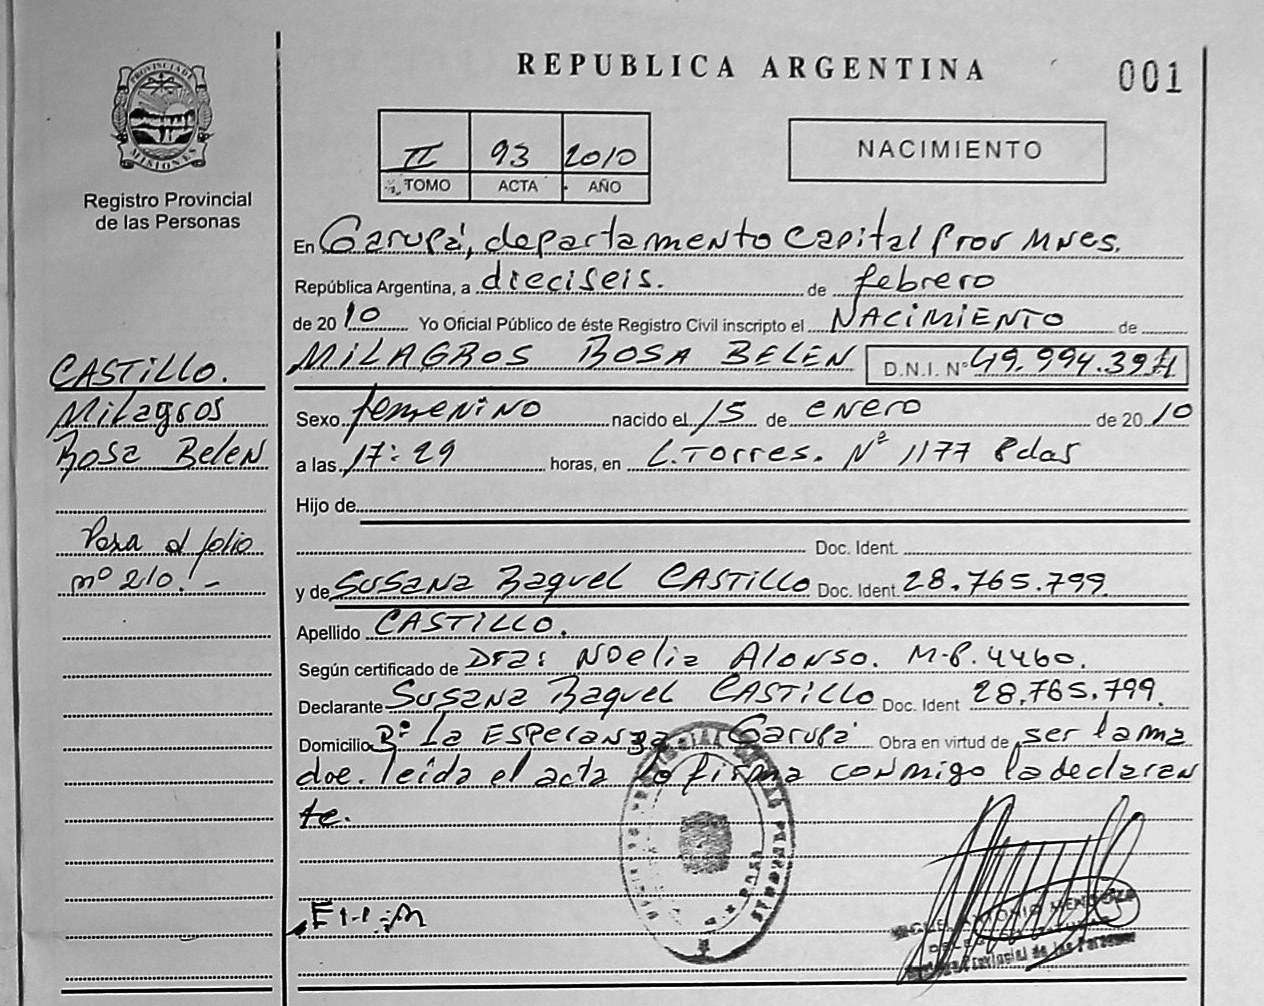 REPUBLICA ARGENTINA
001
PROVINCIA DE MISIONES
Registro Provincial
de las Personas
II 93 2010
TOMO ACTA AÑO
NACIMIENTO
En Garupá, departamento Capital Prov Mnes.
República Argentina, a dieciseis. de febrero
de 2010 Yo Oficial Público de éste Registro Civil inscripto el NACIMIENTO de
MILAGROS ROSA BELEN D.N.I. Nº 49.994.394
CASTILLO.
Milagros
Rosa Belen
Pasa al folio
nº 210.-
Sexo femenino nacido el 15 de enero de 2010
a las 17:29 horas, en L. Torres. Nº 1177 Pdas
Hijo de
Doc. Ident.
y de Susana Raquel CASTILLO Doc. Ident. 28.765.799
Apellido CASTILLO.
Según certificado de Dra: Noelia Alonso. M.P. 4460.
Declarante Susana Raquel CASTILLO Doc. Ident 28.765.799
Domicilio Bº La Esperanza Garupá Obra en virtud de ser la ma
dre. leída el acta la firma conmigo la declaran
te.
ANTONIO MENDOZA
Provincial de las Personas